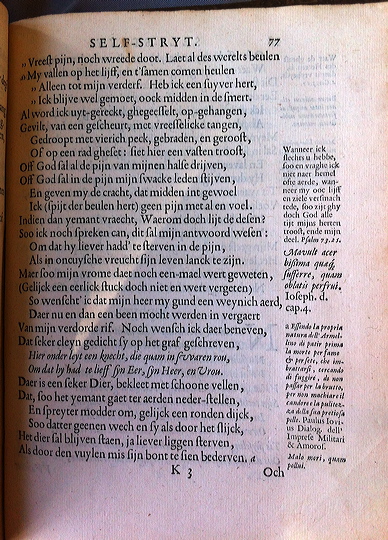 SELF-STRYT. 77
„ Vreest pijn, noch wreede doot. Laet al des werelts beulen
„ My vallen op het lijff, en t'samen comen heulen
„ Alleen tot mijn verderf. Heb ick een suyver hert,
„ Ick blijve wel gemoet, oock midden in de smert.
Al word ick uyt-gereckt, ghegeesselt, op-gehangen,
Gevilt, van een gescheurt, met vreesselicke tangen,
Gedroopt met vierich peck, gebraden, en geroost,
Of op een rad gheset: siet hier een vasten troost,
Off God sal al de pijn van mijnen halse drijven,
Off God sal in de pijn mijn swacke leden stijven,
En geven my de cracht, dat midden int gevoel
Ick (spijt der beulen hert) geen pijn met al en voel.
Indien dan yemant vraecht, Waerom doch lijt de desen?
Soo ick noch spreken can, dit sal mijn antwoord wesen:
Om dat hy liever hadd' te sterven in de pijn,
Als in oncuysche vreucht sijn leven lanck te zijn.
Maer soo mijn vrome daet noch een-mael wert geweten,
(Gelijck een eerlick stuck doch niet en wert vergeten)
So wenscht' ic dat mijn heer my gund een weynich aerd,
Daer nu en dan een been mocht werden in vergaert
Van mijn verdorde rif. Noch wensch ick daer beneven,
Dat seker cleyn gedicht sy op het graf geschreven,
Hier onder leyt een knecht, die quam in swaren rou,
Om dat hy had' te lieff sijn Eer, sijn Heer, en Vrou.
Daer is een seker Dier, bekleet met schoone vellen,
Dat, soo het yemant gaet ter aerden neder-stellen,
En spreyter modder om, gelijck een ronden dijck,
Soo datter geenen wech en sy als door het slijck,
Het dier sal blijven staen, ja liever liggen sterven,
Als door den vuylen mis sijn bont te sien bederven. a
K 3 Och
Wanneer ick
slechts u hebbe,
soo en vraghe ick
niet naer hemel
ofte aerde, wan-
neer my ooc lijff
en ziele versmach
tede, soo zijt ghy
doch God alle
tijt mijns herten
troost, ende mijn
deel. Psalm 73.25.
Mavult acer
bissima quæq;
sufferre, quam
oblatis perfrui,
Ioseph. d.
cap. 4.
a Essendo la propria
natura dell' Armel-
lino di patir prima
la morte per fame
& per sete, che im-
brattarsi, cercando
di fuggire, di non
passar per lo brutto,
per non macchiare il
candore e la politez-
za della sua pretiosa
pelle. Paulus Iovi-
us Dialog. dell'
Imprese Militari
& Amorose.
Malo mori, quam
pollui.